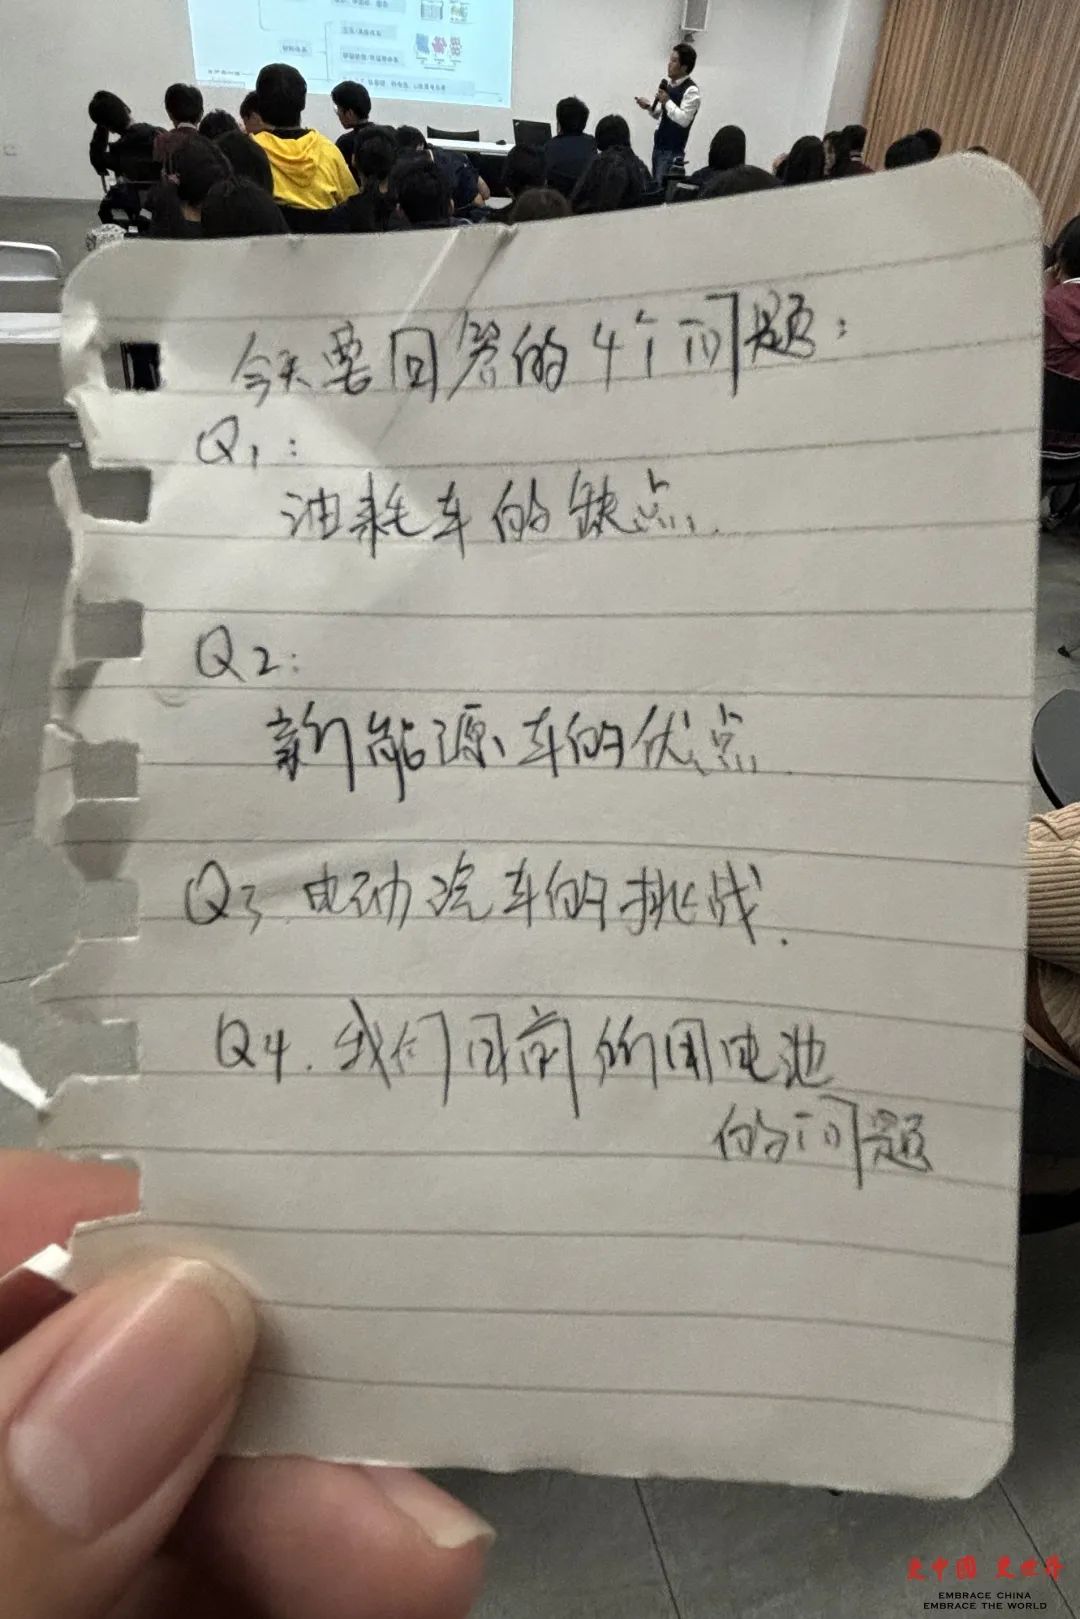 今天要回答的4个问题：
Q1：
油耗车的缺点.
Q2：
新能源车的优点.
Q3 电动汽车的挑战.
Q4. 我们目前的用电池
的问题
更中国 更世界
EMBRACE CHINA
EMBRACE THE WORLD